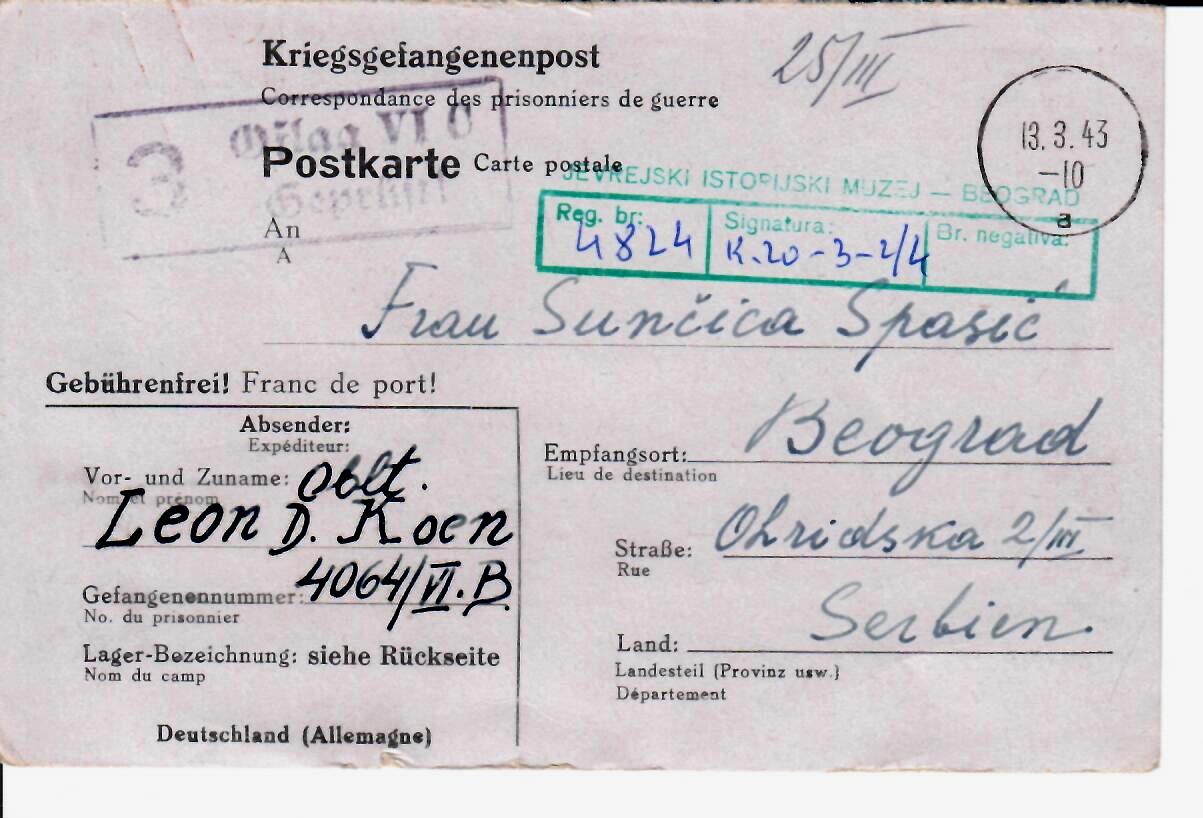 Kriegsgefangenenpost
25/III
Correspondance des prisonniers de guerre
13.3.43
-10
a
3
Oflag VI C
Geprüft
Postkarte Carte postale
JEVREJSKI ISTORIJSKI MUZEJ — BEOGRAD
Reg. br: 4824
Signatura: K.20-3-2/4
Br. negativa:
An
A
Frau Sunčica Spasić
Gebührenfrei! Franc de port!
Absender:
Expéditeur:
Vor- und Zuname: Oblt.
Nom et prénom
Leon D. Koen
Gefangenennummer: 4064/VI.B
No. du prisonnier
Lager-Bezeichnung: siehe Rückseite
Nom du camp
Deutschland (Allemagne)
Empfangsort: Beograd
Lieu de destination
Straße: Ohridska 2/III
Rue
Land: Serbien.
Landesteil (Provinz usw.)
Département